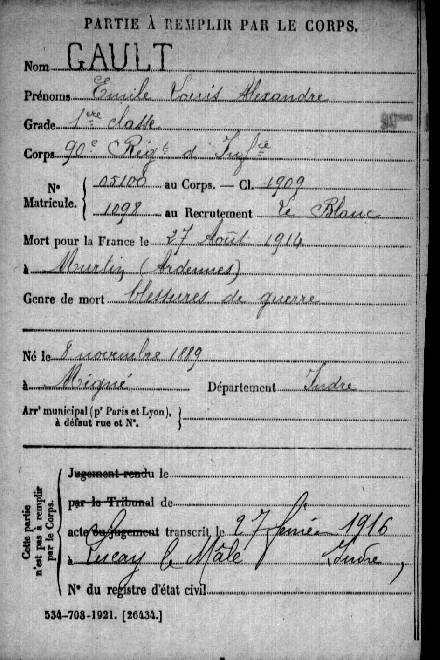 PARTIE À REMPLIR PAR LE CORPS.
Nom GAULT
Prénoms Emile Louis Alexandre
Grade 1ère classe
Corps 90e Régt d'Infrie
N° Matricule. { 05108 au Corps. — Cl. 1909
1098 au Recrutement Le Blanc
Mort pour la France le 27 Août 1914
à Murtin (Ardennes)
Genre de mort blessures de guerre
Né le 8 novembre 1889
à Migné Département Indre
Arrt municipal (pr Paris et Lyon), à défaut rue et N°. }
Cette partie n'est pas à remplir par le Corps.
Jugement rendu le
par le Tribunal de
acte ou jugement transcrit le 27 février 1916
à Luçay le Mâle Indre,
N° du registre d'état civil
534-708-1921. [26434.]